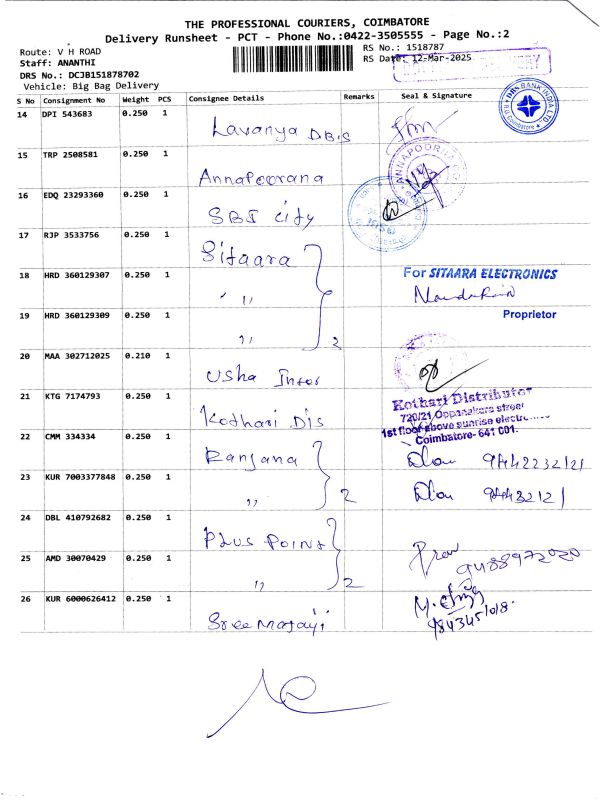 THE PROFESSIONAL COURIERS, COIMBATORE
Delivery Runsheet - PCT - Phone No.:0422-3505555 - Page No.:2
Route: V H ROAD
RS No.: 1518787
Staff: ANANTHI
RS Date: 12-Mar-2025
DRS No.: DCJB151878702
Vehicle: Big Bag Delivery
S No Consignment No Weight PCS Consignee Details Remarks Seal & Signature
14 DPI 543683 0.250 1 Lavanya DBIS
15 TRP 2508581 0.250 1 Annapoorana
ANNAPOORNA
16 EDQ 23293360 0.250 1 SBI city
17 RJP 3533756 0.250 1 Sitaara
18 HRD 360129307 0.250 1 " 
For SITAARA ELECTRONICS
19 HRD 360129309 0.250 1 " 2
Proprietor
20 MAA 302712025 0.210 1 Usha Inter
21 KTG 7174793 0.250 1 Kothari Dis
Kothari Distributor
720/21, Oppanakara street
1st floor above sunrise
Coimbatore- 641 001.
22 CMM 334334 0.250 1 Ranjana
23 KUR 7003377848 0.250 1 " 2
24 DBL 410792682 0.250 1 Plus Point
25 AMD 30070429 0.250 1 " 2
9488972020
26 KUR 6000626412 0.250 1 Sree Matajii